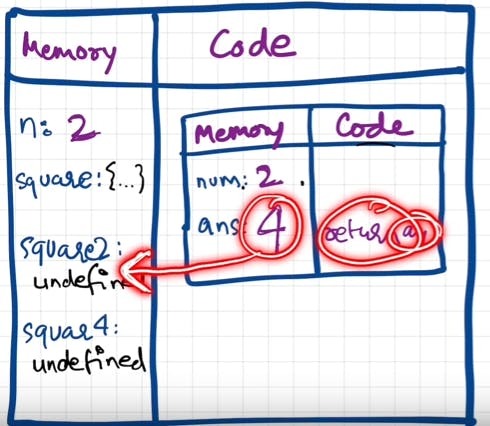 Memory
Code
n: 2
square: {...}
square2:
undefin
squar4:
undefined
Memory
Code
num: 2
ans: 4
retur a